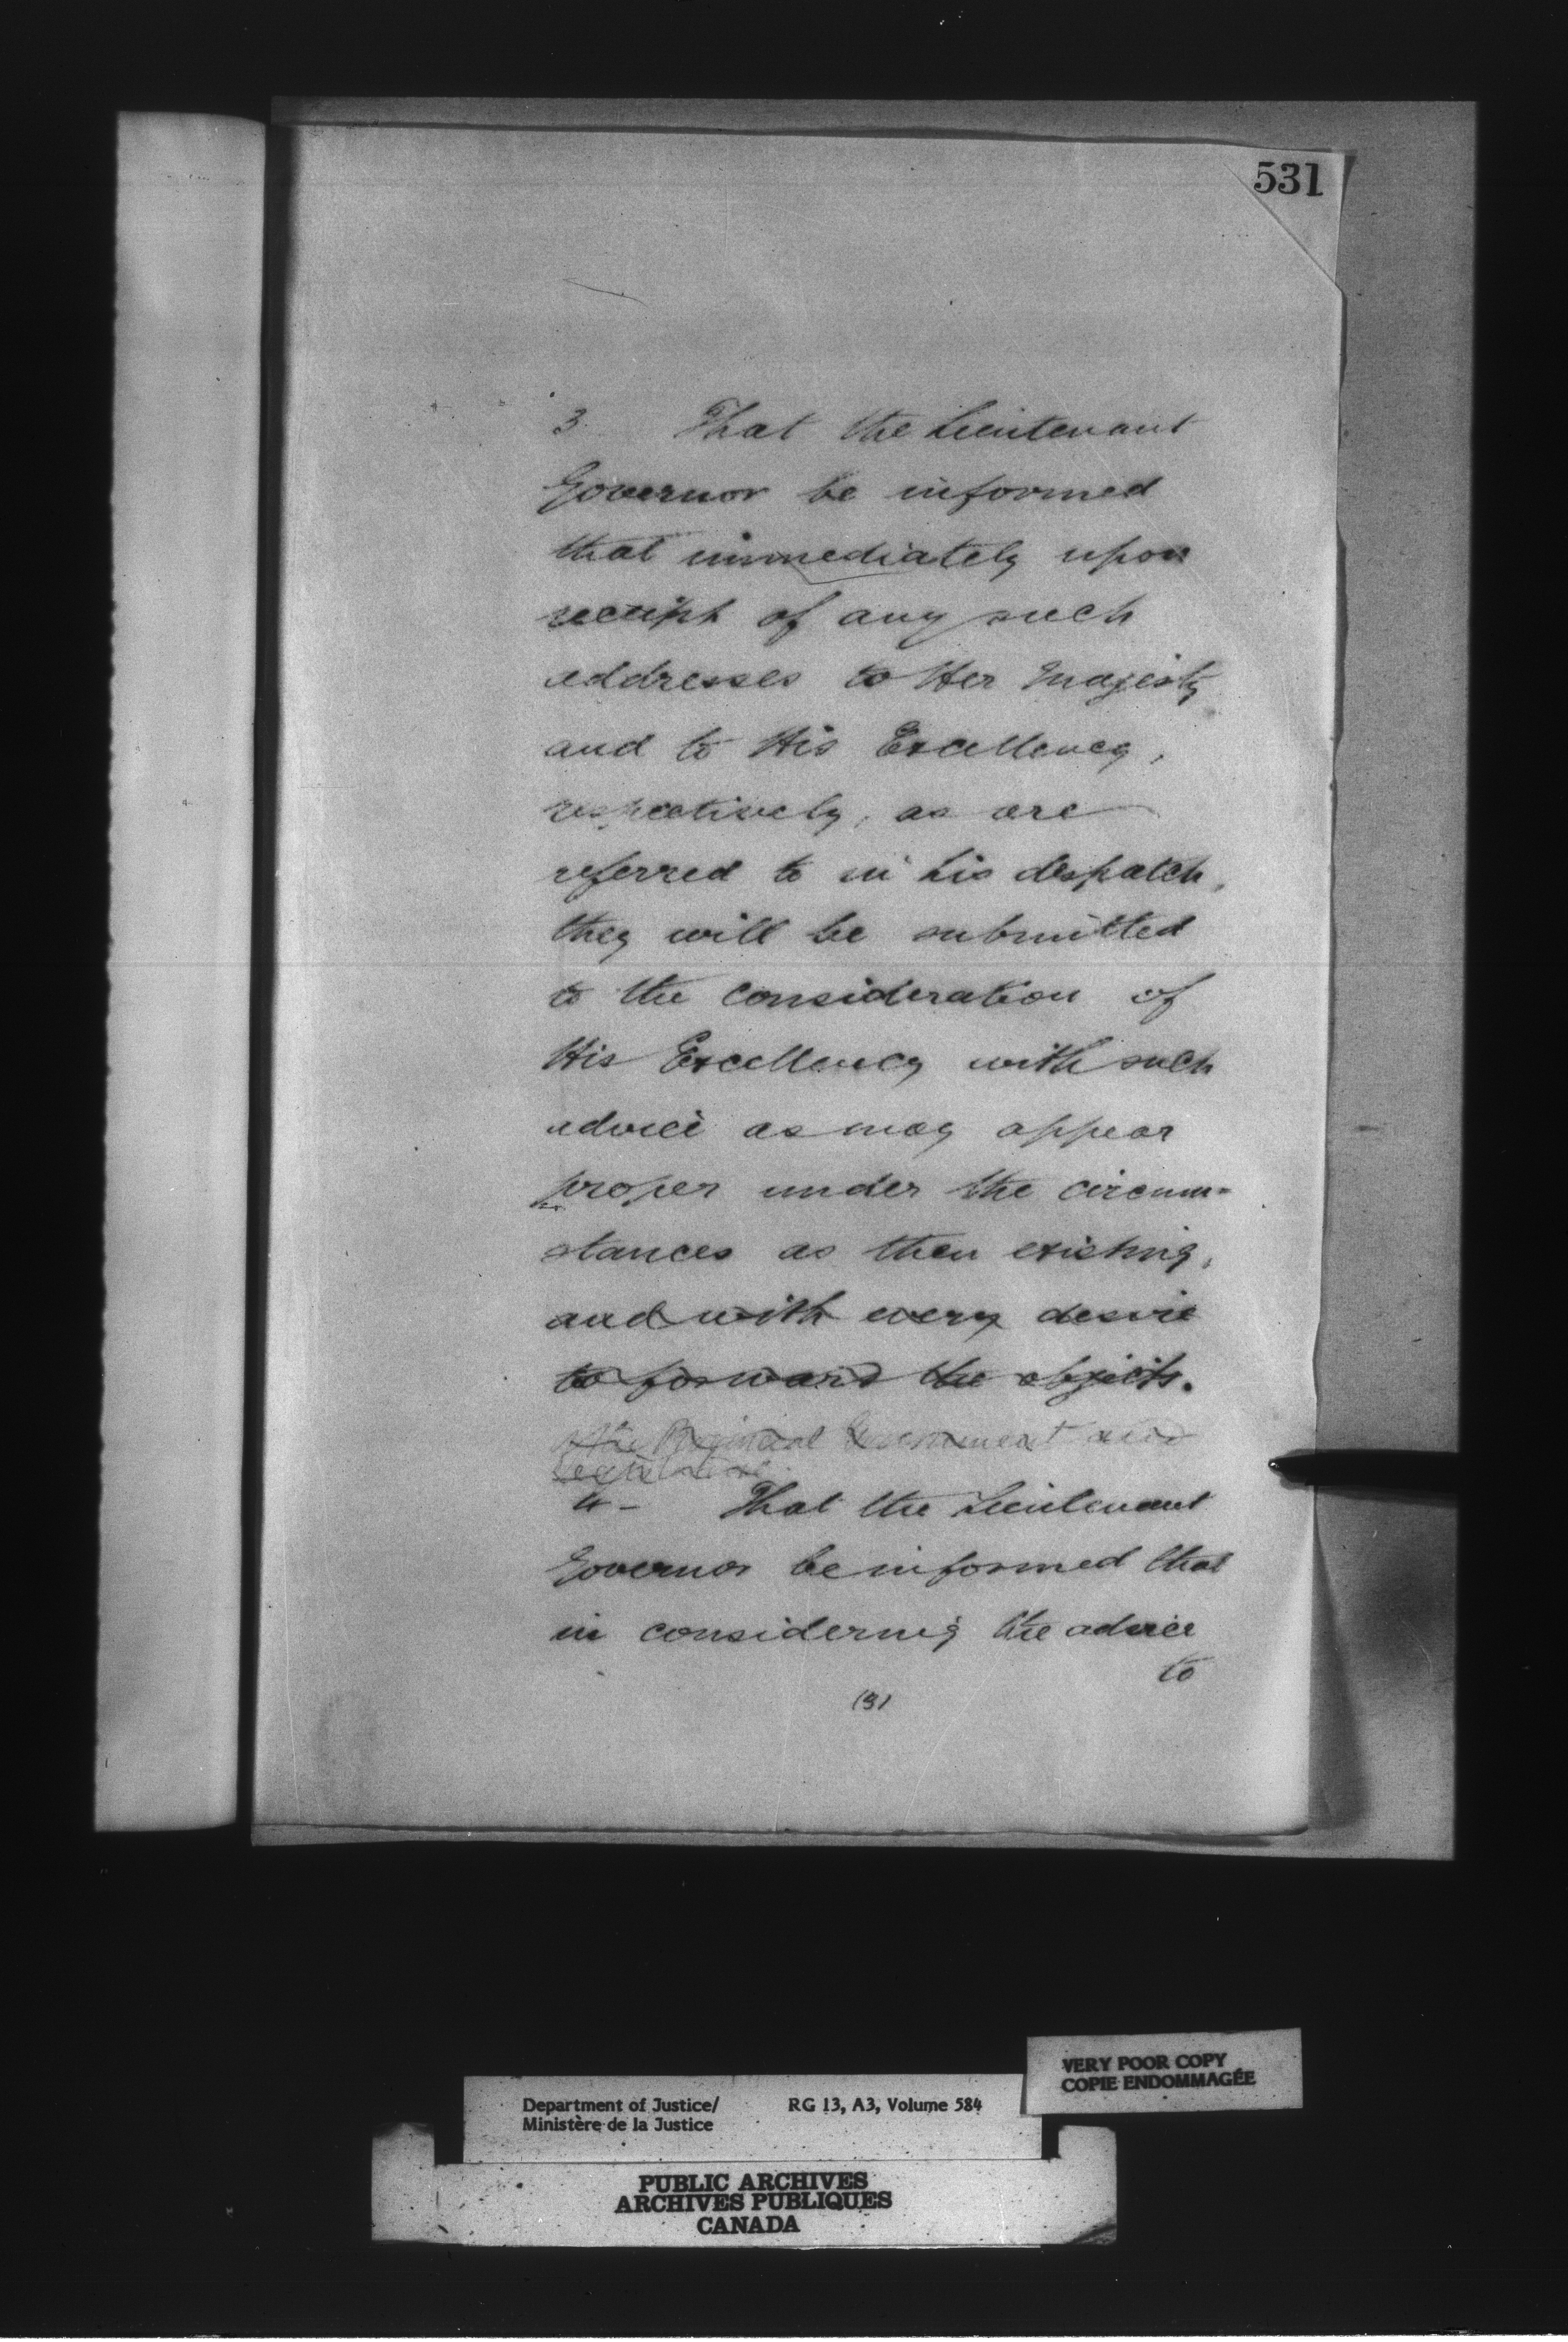 531
3. That the Lieutenant
Governor be informed
that immediately upon
receipt of any such
addresses to Her Majesty
and to His Excellency,
respectively, as are
referred to in his despatch,
they will be submitted
to the consideration of
His Excellency with such
advice as may appear
proper under the circum-
stances as then existing,
and with every desire
to forward the objects.
of the Provincial Government and
Legislature.
4 - That the Lieutenant
Governor be informed that
in considering the advice
to
(3)
VERY POOR COPY
COPIE ENDOMMAGÉE
Department of Justice/ RG 13, A3, Volume 584
Ministère de la Justice
PUBLIC ARCHIVES
ARCHIVES PUBLIQUES
CANADA